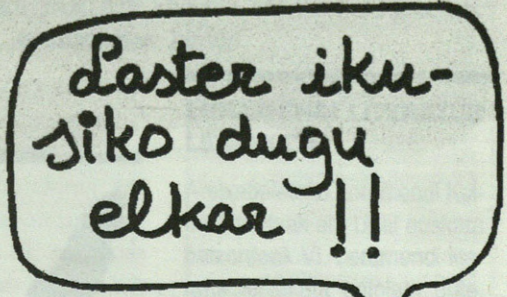 Laster iku-
siko dugu
elkar !!